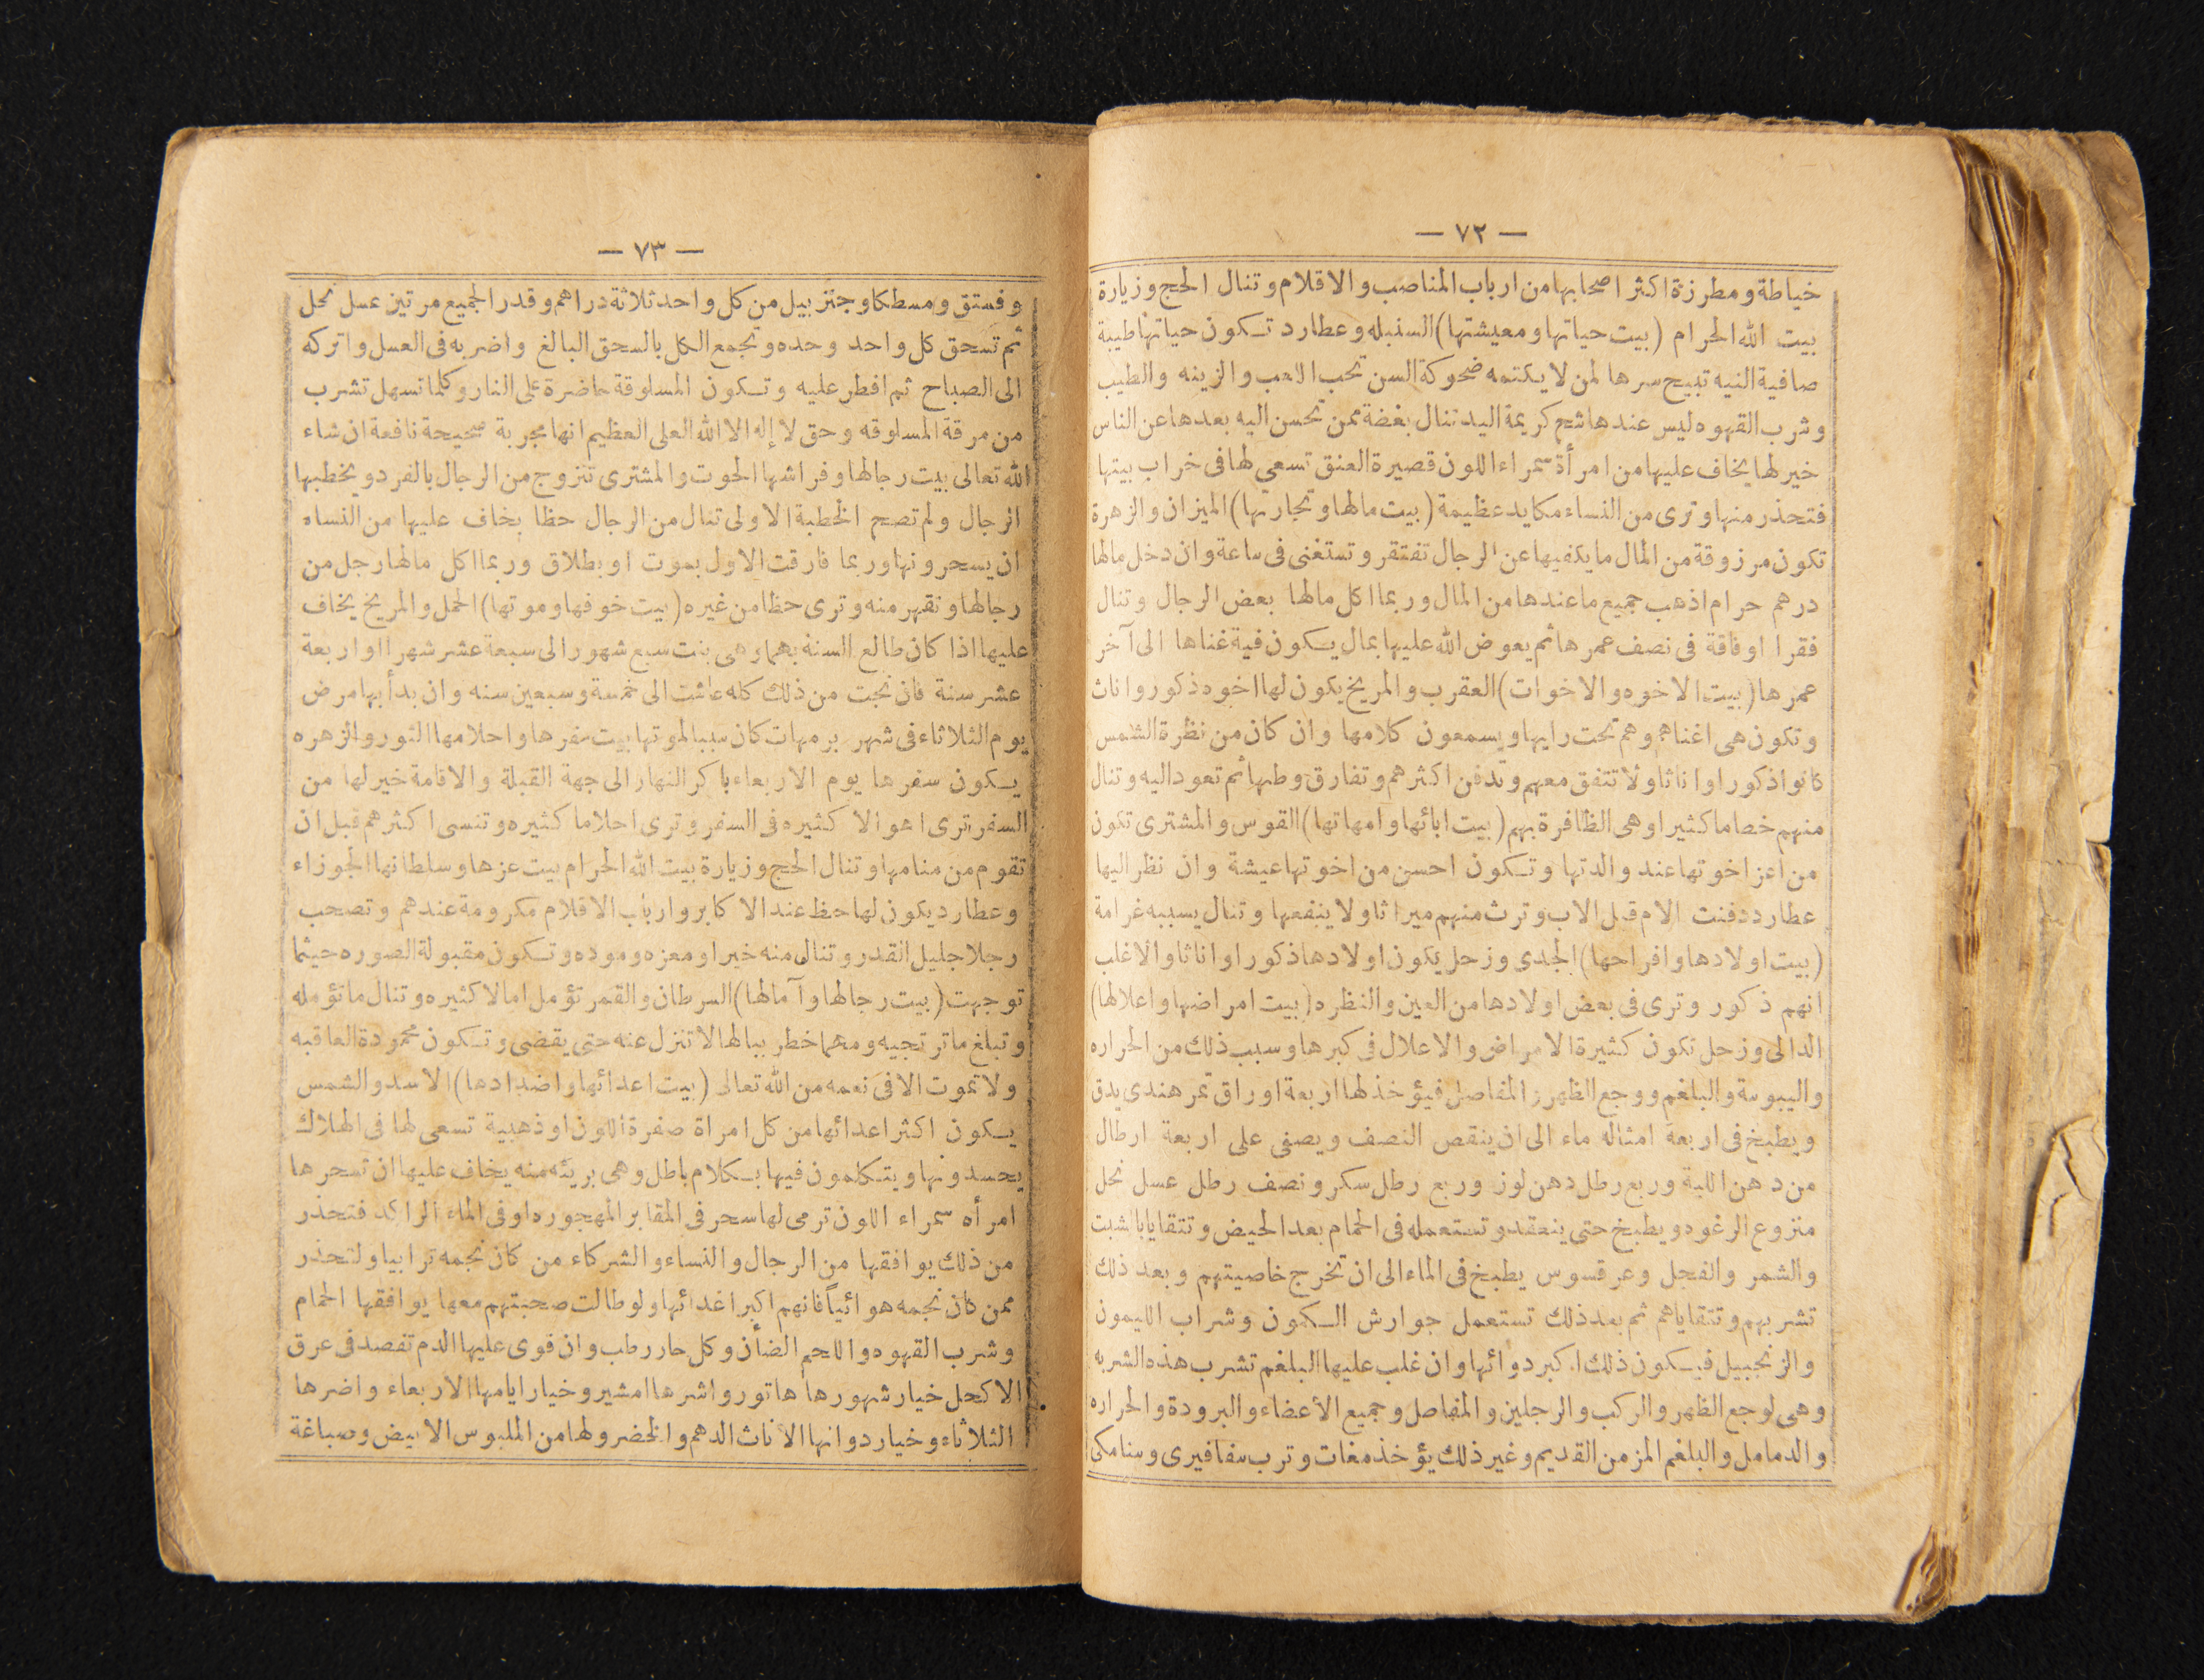 — ٧٢ —
خياطة ومطرزة اكثر اصحابها من ارباب المناصب والاقلام وتنال الحج وزيارة
بيت الله الحرام (بيت حياتها ومعيشتها) السنبله وعطارد تكون حياتها طيبة
صافية النيه تبيح سرها لمن لا يكتمه ضحوكة السن تحب اللعب والزينه والطيب
وشرب القهوه ليس عندها شح كريمة اليد تنال بغضة ممن تحسن اليه بعدها عن الناس
خير لها يخاف عليها من امرأة سمراء اللون قصيرة العنق تسعى لها فى خراب بيتها
فتحذر منها وترى من النساء مكايد عظيمة (بيت مالها وتجارتها) الميزان والزهرة
تكون مرزوقة من المال ما يكفيها عن الرجال تفتقر وتستغنى فى ساعة وان دخل مالها
درهم حرام اذهب جميع ما عندها من المال وربما اكل مالها بعض الرجال وتنال
فقرا او فاقة فى نصف عمرها ثم يعوض الله عليها بمال يكون فية غناها الى آخر
عمرها (بيت الاخوه والاخوات) العقرب والمريخ يكون لها اخوه ذكور واناث
وتكون هى اغناهم وهم تحت رايها ويسمعون كلامها وان كان من نظرة الشمس
كانوا ذكورا واناثا ولا تتفق معهم وتدفن اكثرهم وتفارق وطنها ثم تعود اليه وتنال
منهم خصاما كثيرا وهى الظافرة بهم (بيت ابائها وامهاتها) القوس والمشترى تكون
من اعز اخوتها عند والدتها وتكون احسن من اخوتها عيشة وان نظر اليها
عطارد دفنت الام قبل الاب وترث منهم ميراثا ولا ينفعها وتنال بسببه غرامة
(بيت اولادها وافراحها) الجدى وزحل يكون اولادها ذكورا واناثا والاغلب
انهم ذكور وترى فى بعض اولادها من العين والنظره (بيت امراضها واعلالها)
الدالى وزحل تكون كثيرة الامراض والاعلال فى كبرها وسبب ذلك من الحراره
واليبوسة والبلغم ووجع الظهر والمفاصل فيؤخذ لها اربعة اوراق تمر هندى يدق
ويطبخ فى اربعة امثاله ماء الى ان ينقص النصف ويصفى على اربعة ارطال
من دهن اللية وربع رطل دهن لوز وربع رطل سكر ونصف رطل عسل نحل
منزوع الرغوه ويطبخ حتى ينعقد وتستعمله فى الحمام بعد الحيض وتتقايا بالشبت
والشمر والفجل وعرقسوس يطبخ فى الماء الى ان تخرج خاصيتهم وبعد ذلك
تشربهم وتتقاياهم ثم بعد ذلك تستعمل جوارش الكمون وشراب الليمون
والزنجبيل فيكون ذلك اكبر دوائها وان غلب عليها البلغم تشرب هذه الشربه
وهى لوجع الظهر والركب والرجلين والمفاصل وجميع الأعضاء والبرودة والحراره
والدمامل والبلغم المزمن القديم وغير ذلك يؤخذ مغات وترب سفافيرى وسنامكى
— ٧٣ —
وفستق ومسطكا وجنزبيل من كل واحد ثلاثة دراهم وقدر الجميع مرتين عسل نحل
ثم تسحق كل واحد وحده وتجمع الكل بالسحق البالغ واضربه فى العسل واتركه
الى الصباح ثم افطر عليه وتكون المسلوقة حاضرة على النار وكلما تسهل تشرب
من مرقة المسلوقه وحق لا إله الا الله العلى العظيم انها مجربة صحيحة نافعة ان شاء
الله تعالى بيت رجالها وفراشها الحوت والمشترى تتزوج من الرجال بالفرد ويخطبها
الرجال ولم تصح الخطبة الاولى تنال من الرجال حظا يخاف عليها من النساه
ان يسحرونها وربما فارقت الاول بموت او بطلاق وربما اكل مالها رجل من
رجالها ونقهر منه وترى حظا من غيره (بيت خوفها وموتها) الحمل والمريخ يخاف
عليها اذا كان طالع السنة بهما وهى بنت سبع شهور الى سبعة عشر شهرا او اربعة
عشر سنة فان نجت من ذلك كله عاشت الى خمسة وسبعين سنه وان بدأ بها مرض
يوم الثلاثاء فى شهر برمهات كان سببا لموتها بيت سفرها واحلامها الثور والزهره
يكون سفرها يوم الاربعاء باكر النهار الى جهة القبلة والاقامة خير لها من
السفر ترى اهوالا كثيره فى السفر وترى احلاما كثيره وتنسى اكثرهم قبل ان
تقوم من منامها وتنال الحج وزيارة بيت الله الحرام بيت عزها وسلطانها الجوزاء
وعطارد يكون لها حظ عند الاكابر وارباب الاقلام مكرومة عندهم وتصحب
رجلا جليل القدر وتنال منه خيرا ومعزه وموده وتكون مقبولة الصوره حيثما
توجهت (بيت رجالها وآمالها) السرطان والقمر تؤمل امالا كثيره وتنال ما تؤمله
وتبلغ ما ترتجيه ومهما خطر ببالها لا تنزل عنه حتى يقضى وتكون محمودة العاقبه
ولا تموت الا فى نعمه من الله تعالى (بيت اعدائها واضدادها) الاسد والشمس
يكون اكثر اعدائها من كل امراة صفرة اللون او ذهبية تسعى لها فى الهلاك
يحسدونها ويتكلمون فيها بكلام باطل وهى بريئه منه يخاف عليها ان تسحرها
امرأه سمراء اللون ترمى لها سحر فى المقابر المهجوره او فى الماء الراكد فتحذر
من ذلك يوافقها من الرجال والنساء والشركاء من كان نجمه ترابيا ولتحذر
ممن كان نجمه هوائياً فانهم اكبر اعدائها ولو طالت صحبتهم معها يوافقها الحمام
وشرب القهوه واللحم الضأن وكل حار رطب وان قوى عليها الدم تفصد فى عرق
الاكحل خيار شهورها هاتور واشرها امشير وخيار ايامها الاربعاء واضرها
الثلاثاء وخيار دوابها الاناث الدهم والخضر ولها من الملبوس الابيض وصباغة